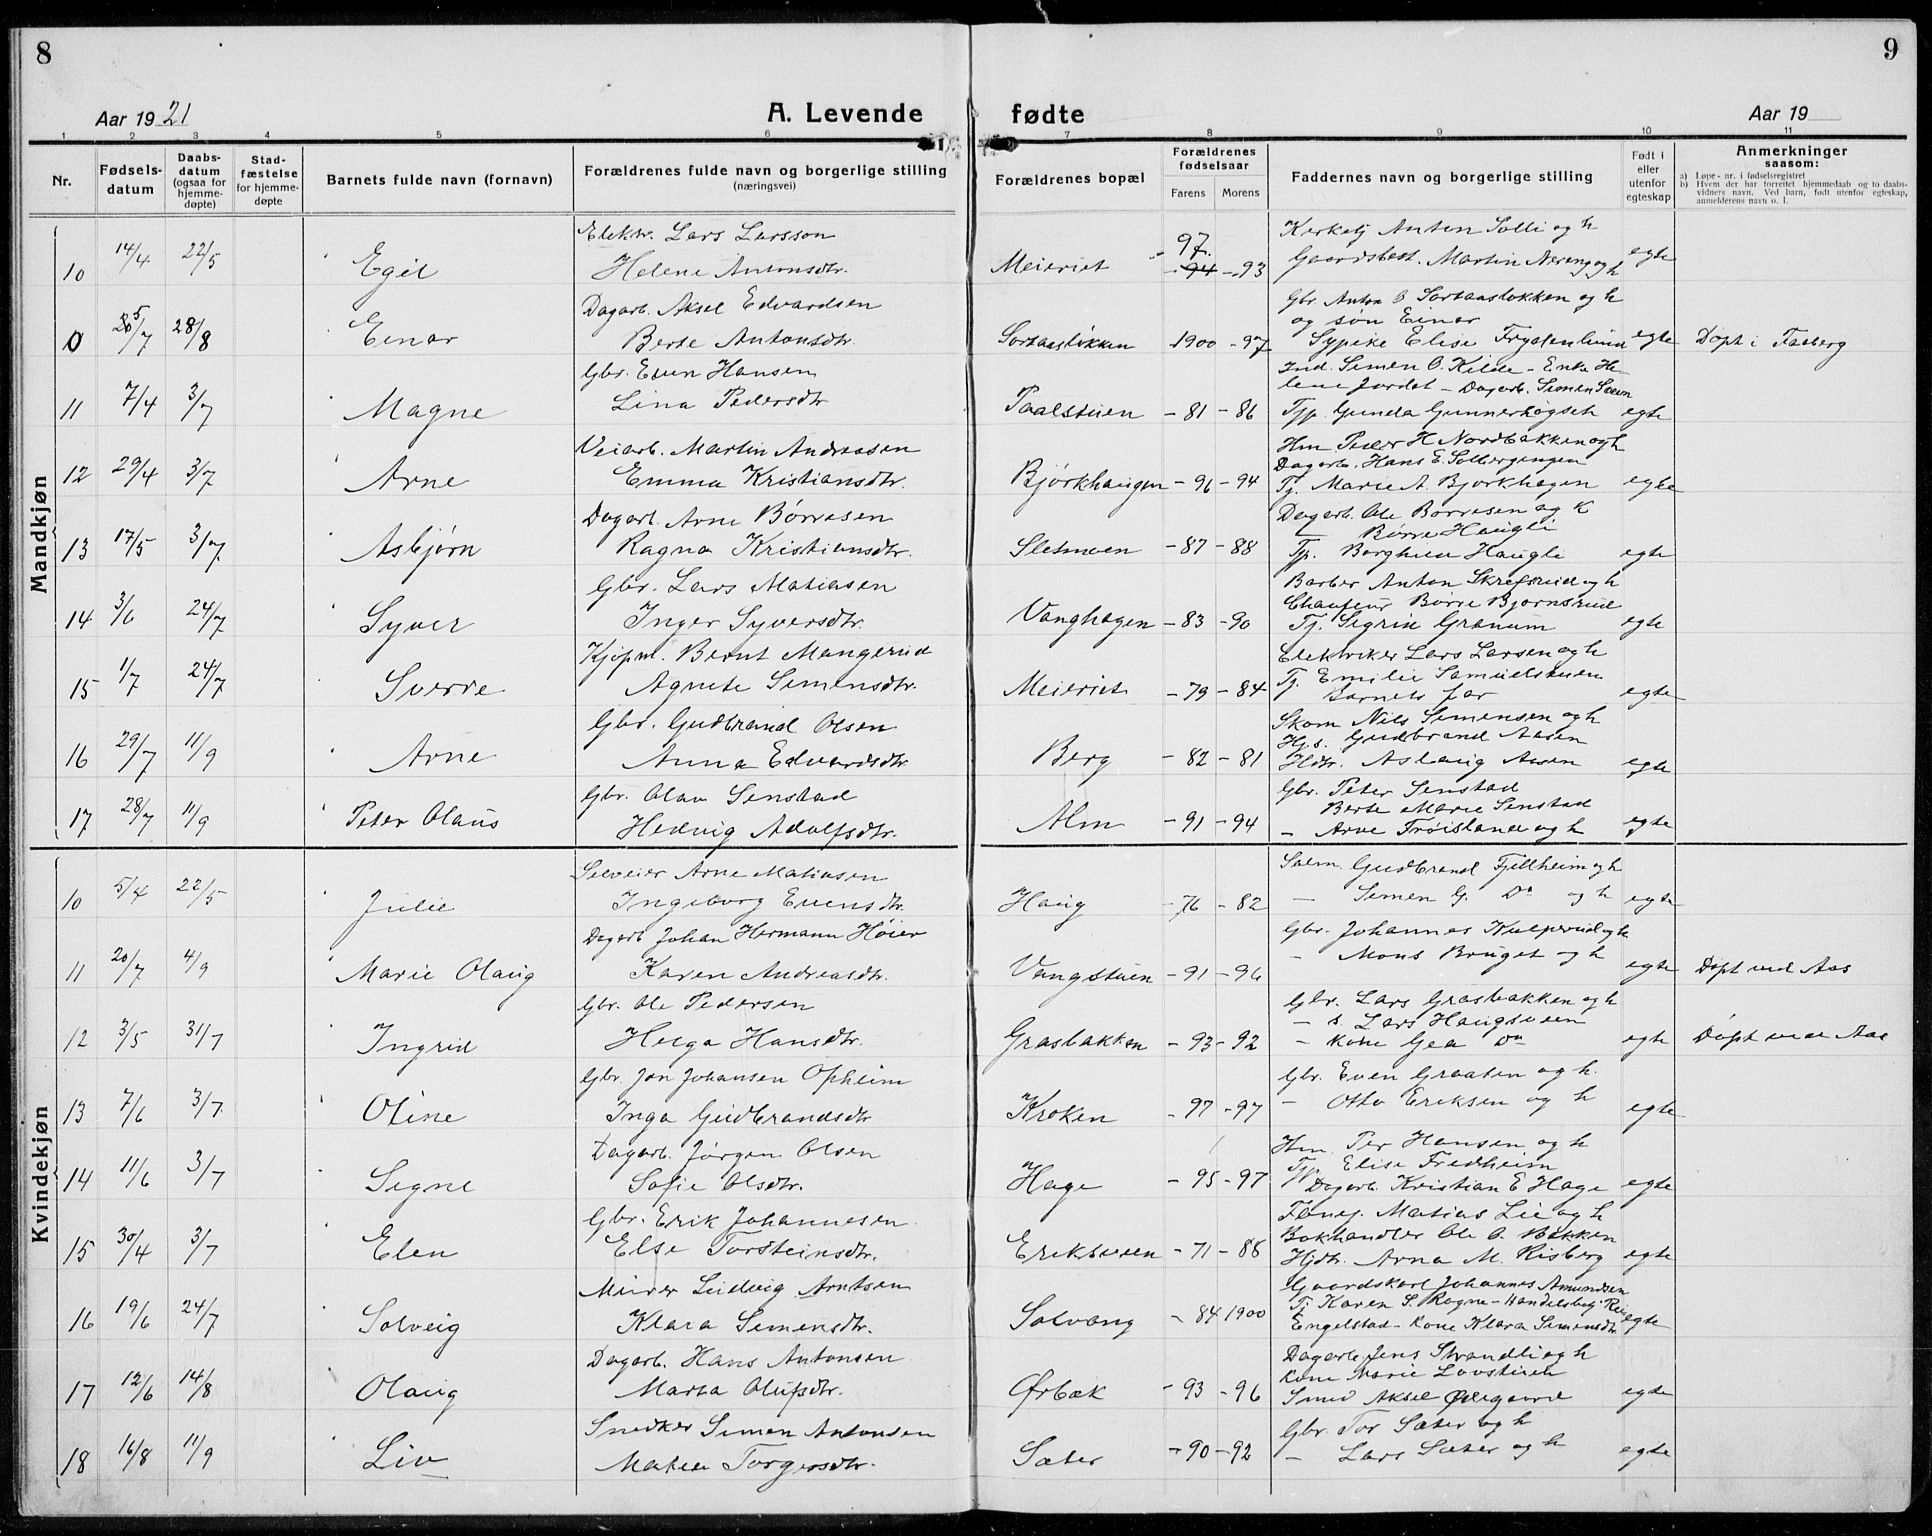 8
9
Aar 1921
A. Levende fødte
Aar 19
1 2 3 4 5 6 7 8 9 10 11
Nr.
Fødsels-
datum
Daabs-
datum
(ogsaa for
hjemme-
døpte)
Stad-
fæstelse
for hjemme-
døpte
Barnets fulde navn (fornavn)
Forældrenes fulde navn og borgerlige stilling
(næringsvei)
Forældrenes bopæl
Forældrenes
fødselsaar
Farens Morens
Faddernes navn og borgerlige stilling
Født i
eller
utenfor
egteskap
Anmerkninger
saasom:
a) Løpe-nr. i fødselsregistret
b) Hvem der har forrettet hjemmedaab og to daabs-
vidners navn. Ved barn, født utenfor egteskap,
anmelderens navn o. l.
Mandkjøn
Elektr. Lars Larsson
Kirketj Anton Solli og h
10 14/4 22/5 Egil Helene Antonsdtr. Meieriet 97. 94 - 93 Gaardsbest. Martin Nereng og h egte
Dagarb. Aksel Edvardsen
Gbr. Anton O Sortaasløkken og h
og søn Einar
0 25/7 28/8 Einar Berte Antonsdtr. Sortaasløkken 1900 - 97 Sypike Elise Frydenlund egte Døpt i Faaberg
Gbr. Even Hansen
Ind. Simen O. Kilde - Enke He-
lene Jordet - Dagarb. Simen
11 7/4 3/7 Magne Lina Pedersdtr Paalstuen - 81 - 86 Tjp. Gunda Gunnerhøgset egte
Veiarb. Martin Andreasen
Hm Peder H Nordbakken og h
Dagarb. Hans E. Solbergengen
12 29/4 3/7 Arne Emma Kristiansdtr. Bjørkhaugen - 96 - 94 Tj. Marie A. Bjørkhagen egte
Dagarb. Arne Børresen
Dagarb. Ole Børresen og k
— Børre Haugli
13 17/5 3/7 Asbjørn Ragna Kristiansdtr. Sletmoen - 87 - 88 Tjp. Borghild Haugli egte
Gbr. Lars Matiasen
Barber Anton Skrefsrud og h
Chauffeur Børre Bjørnsrud
14 3/6 24/7 Syver Inger Syversdtr. Vanghagen - 83 - 90 Tj. Sigrid Granum egte
Kjøpm. Bernt Mangerud
Elektriker Lars Larsen og h
Tj. Emilie Samuelstuen
15 1/7 24/7 Sverre Agnete Simensdtr. Meieriet - 79 - 84 Barnets far egte
Gbr. Gudbrand Olsen
Skom Nils Simensen og h
Hj.s. Gudbrand Aasen
16 29/7 11/9 Arne Anna Edvardsdtr. Berg - 82 - 81 Hdtr. Aslaug Aasen egte
Gbr. Olav Senstad
Gbr. Peter Senstad
Berte Marie Senstad
17 28/7 11/9 Peter Olaus Hedvig Adolfsdtr. Alm - 91 - 94 — Arne Trøisland og h egte
Kvindekjøn
Seiveier Arne Matiasen
Salm. Gudbrand Fjellheim og h
10 5/4 22/5 Julie Ingeborg Evensdtr. Haug - 76 - 82 — Simen G. Do og h egte
Dagarb Johan Hermann Høier
Gbr. Johannes Kulperud og h
11 20/7 4/9 Marie Olaug Karen Andreasdtr. Vangstuen - 91 - 96 — Mons Bruget og h egte Døpt ved Aas
Gbr. Ole Pedersen
Gbr. Lars Grasbakken og h
— s. Lars Haugsveen
12 3/5 31/7 Ingrid Helga Hansdtr. Grasbakken - 93 - 92 — Kone Gea Do egte Døpt ved Aas
Gbr. Jon Johansen Opheim
Gbr. Even Graaten og h.
13 7/6 3/7 Oline Inga Gudbrandsdtr Kroken - 97 - 97 — Otto Eriksen og h egte
Dagarb. Jørgen Olsen
Hm. Per Hansen og h
Tjp Elise Fredheim
14 11/6 3/7 Signe Sofie Olsdtr. Hage - 95 - 97 Dagarb. Kristian E Hage egte
Gbr. Erik Johannesen
Matias Lie og h
Bokhandler Ole O. Bakken
15 30/4 3/7 Elen Else Torsteinsdtr. Eriksveen - 71 - 86 Hjdtr. Arna M. Risberg egte
Murer Ludvig Arntsen
Gaardskarl Johannes Amundsen
Tj Karen S. Rogne - Handelsbetj
16 19/6 24/7 Solveig Klara Simensdtr. Solvang - 84 1900 Engelstad - Kone Klara Simensdtr. egte
Dagarb. Hans Antonsen
Dagarb. Jens Strandli og h
Kone Marie Lovstuen
17 12/6 14/8 Olaug Marta Olufsdtr. Ørbæk - 93 - 96 Smed Aksel Ødegaard egte
Snedker Simen Antonsen
Gbr. Tor Sæter og h
18 16/8 11/9 Liv Matea Torgersdtr. Sæter - 90 - 92 — Lars Sæter og h egte